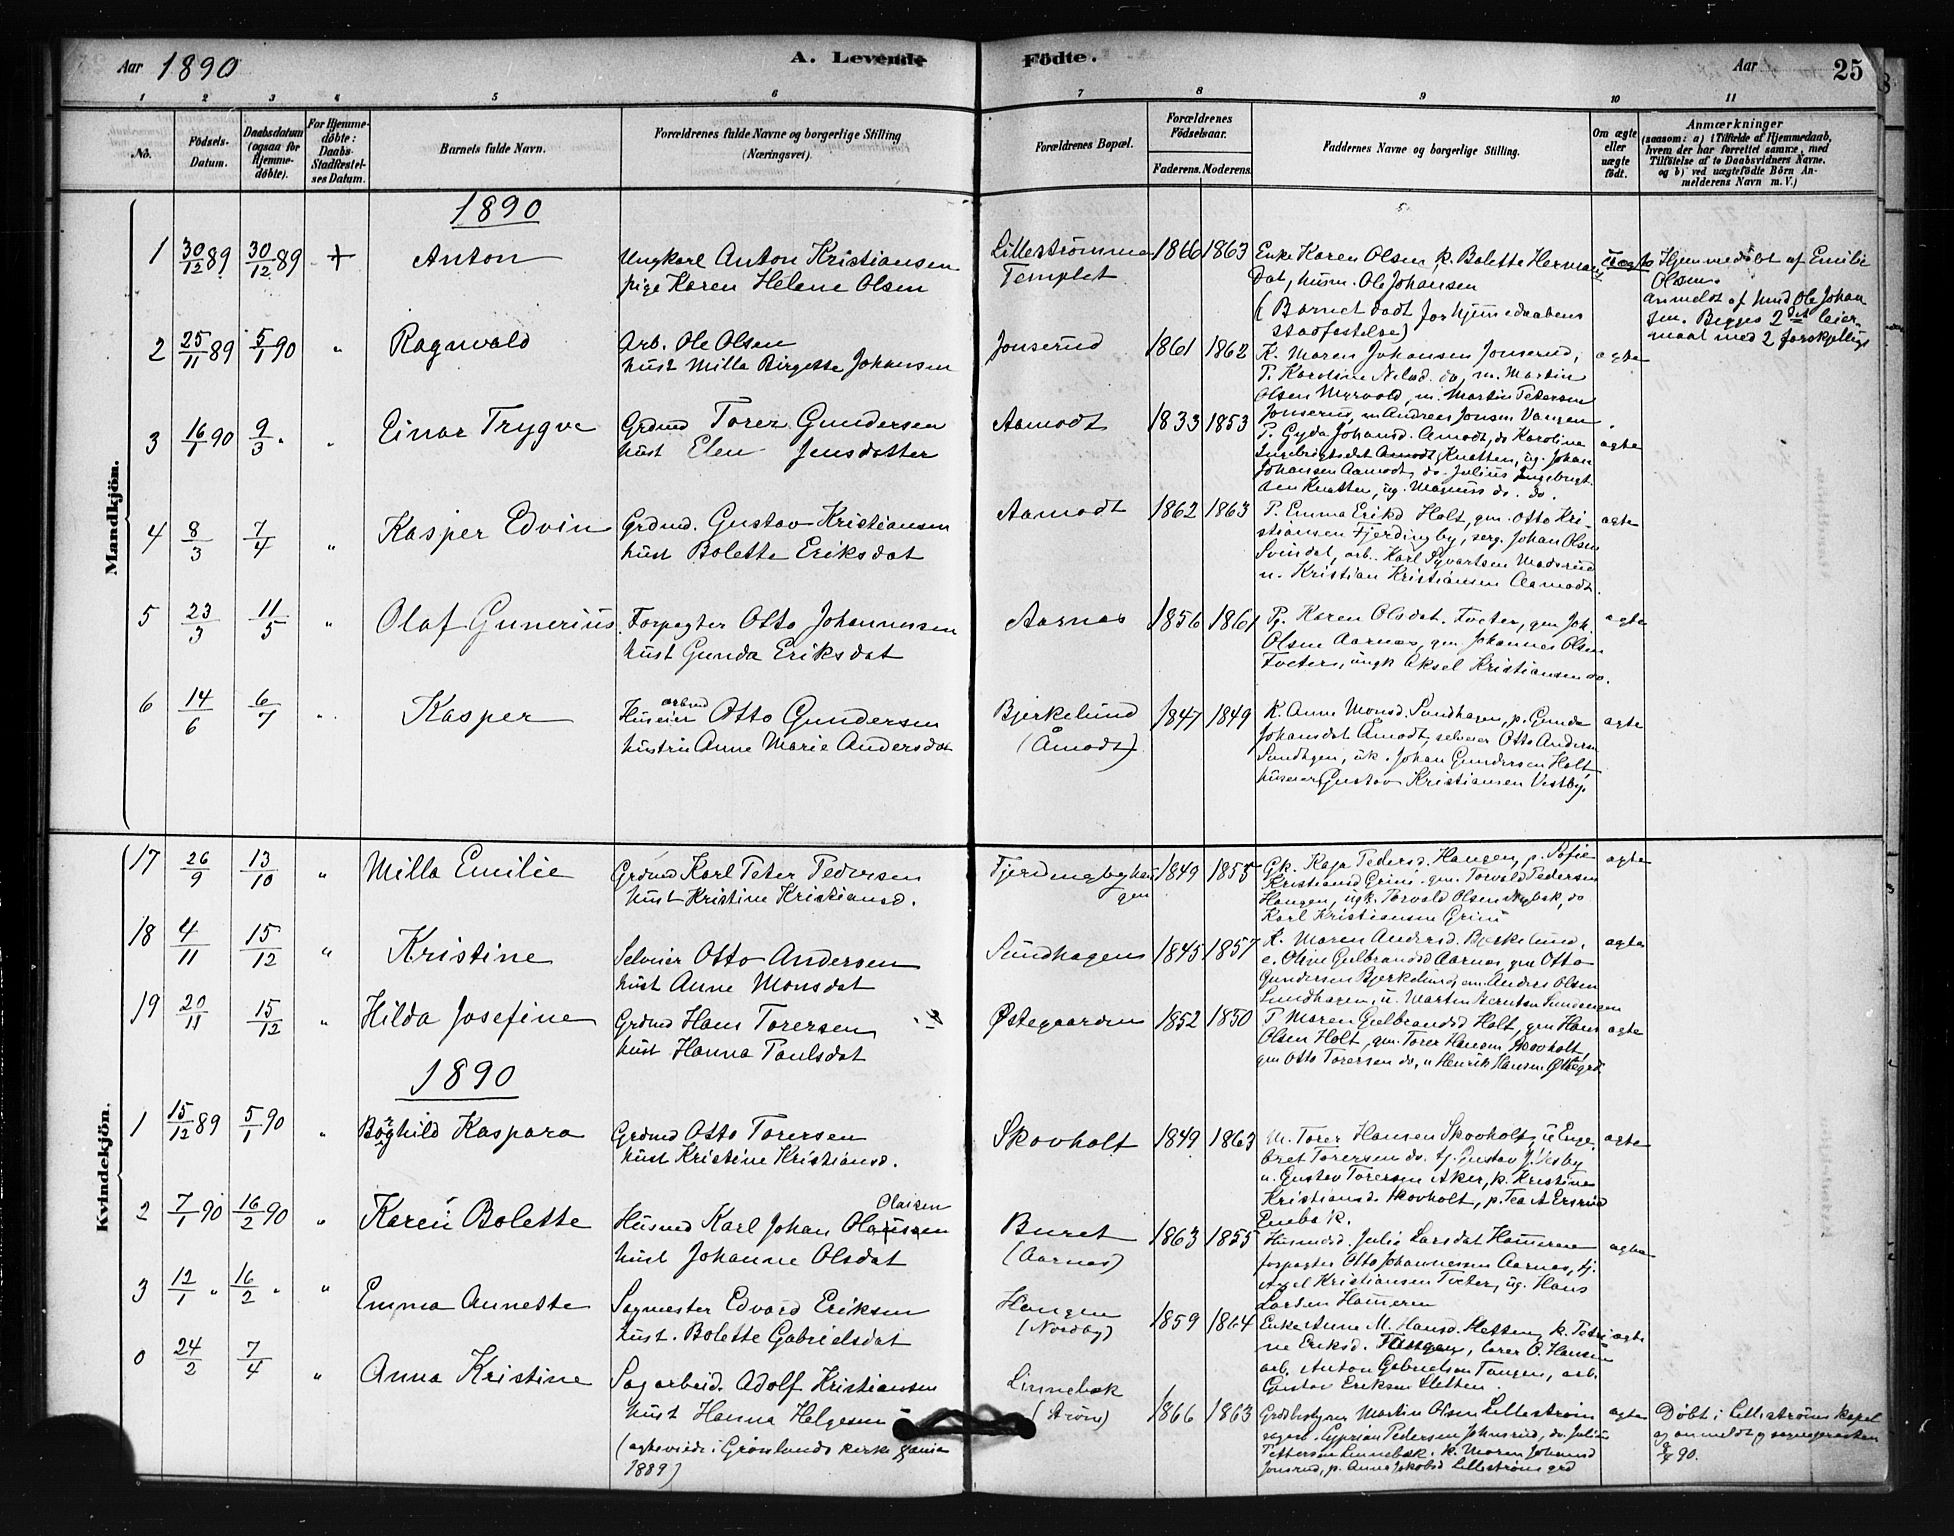 Aar 1890 A. Levende Födte. Aar 25
1 2 3 4 5 6 7 8 9 10 11
No.
Födsels-Datum.
Daabsdatum (ogsaa for Hjemme-døbte).
For Hjemme-døbte: Daabs-Stadfæstel-ses Datum.
Barnets fulde Navn.
Forældrenes fulde Navne og borgerlige Stilling (Næringsvei).
Forældrenes Bopæl.
Forældrenes Födselsaar.
Faderens. Moderens.
Faddernes Navne og borgerlige Stilling.
Om ægte eller uægte født.
Anmærkninger
(saasom: a) i Tilfælde af Hjemmedaab,
hvem der har forrettet samme, med
Tilföielse af to Daabsvidners Navne,
og b) ved uægtefödte Börn An-
melderens Navn m. V.)
Mandkjön.
1890
1 30/12 89 30/12 89 + Anton
Ungkarl Anton Kristiansen
pige Karen Helene Olsen
Lillestrømmen
Templet
1866 1863
Enke Karen Olsen, k. Bolette Hermans
Dat, husm. Ole Johansen
(Barnet dødt før hjemmedaabens
stadfestelse)
uægte
Hjemmedøbt af Emilie
Olsen.
anmeldt af husmd Ole Johan
sen. Begges 2det leier-
maal med 2 forskjellige
2 25/11 89 5/1 90 " Ragnvald
Arb. Ole Olsen
hust Milla Birgette Johansen
Jonserud
1861 1862
K. Maren Johansen Jonserud,
P. Karoline Nilsd. do, m. Martin
Olsen Myrvold, m. Martin Petersen
Jonserud, m Andreas Jonsen Vangen
ægte
3 16/1 90 9/3 " " Einar Trygve
Grdmd Torer Gundersen
hust Elen Jensdatter
Aamodt
1833 1853
P. Gyda Johansd. Amodt, do Karoline
Ingebrigtsdat Amodt Knatten, ug. Johan
Johansen Aamodt, do. Julius Ingebrigt
sen Knatten, ug. Magnus do. do.
ægte
4 8/3 7/4 " Kasper Edvin
Grdmd. Gustav Kristiansen
hust Bolette Eriksdat
Aamodt
1862 1863
P. Emma Eriksd Holt, gm. Otto Kri-
stiansen Fjerdingby, serg. Johan Olsen
Svindal, arb. Karl Syvartsen Maderud
u. Kristian Kristiansen Aamodt.
ægte
5 23/3 11/5 " Olaf Gunerius
Forpagter Otto Johannessen
hust Gunda Eriksdat
Aarnæs
1856 1861
Pg. Karen Olsdat. Tveter, gm Joh.
Olsen Aarnæs, gm Johannes Olsen
Tveter, ungk Aksel Kristiansen do.
ægte
6 14/6 6/7 " Kasper
arbmd
Huseier Otto Gundersen
hustru Anne Marie Andersdat
Bjerkelund
(Åmodt)
1847 1849
K. Anne Monsd. Sundhagen, p. Gunda
Johansdat Åmodt, selveier Otto Anders
Sundhgen, uk. Johan Gundersen Holt,
huseier Gustav Kristiansen Vestby.
ægte
Kvindekjön.
17 26/9 13/10 " Milla Emilie
Grdmd Karl Peter Pedersen
hust Kristine Kristiansd.
Fjerdingbyhau
gen
1849 1855
Gk. Kaja Pedersd. Haugen, p. Sofie
Kristiansd Grini. gm. Torvald Pedersen
Haugen, ugk. Torvald Olsen Nybak, do
Karl Kristiansen Grini
ægte
18 4/11 15/12 " Kristine
Selveier Otto Andersen
hust Anne Monsdat
Sundhagen
1845 1857
K. Maren Andersd. Bjerkelund,
e. Oline Gulbrandsd Aarnæs, gm Otto
Gundersen Bjerkelund, em Anders Olsen
Sundhagen, u. Martin Berntsen Sundhagen
ægte
19 20/11 15/12 " Hilda Josefine
Grdmd Hans Torersen
hust Hanna Paulsdat
Østegaarden
1852 1850
P Maren Gulbrandsd Holt, gm Hans
Olsen Holt, gm. Torer Hansen Skovholt,
gm Otto Torersen do, u Henrik Hansen Østegrd.
ægte
1890
1 15/12 89 5/1 90 " Borghild Kaspara
Grdmd Otto Torersen
hust Kristine Kristiansd.
Skovholt
1849 1863
M. Torer Hansen Skovholt, u Enge-
bret Torersen do. tj. Gustav J. Vesby
u. Gustav Torersen Aker, k. Kristine
Kristiansd. Skovholt, p. Tea A Ersrud
Enebak.
ægte
2 7/1 90 16/2 90 " Karen Bolette
Olaisen
Husmd Karl Johan Olaussen
hust Johanne Olsdat
Buret
(Aarnæs)
1863 1855
Husmdsk. Julie Larsdat Hameren
forpagter Otto Johannessen Aarnæs, tj.
Axel Kristiansen Tveter, ug. Hans
Larsen Hameren
ægte
3 12/1 " 16/2 " " Emma Annette
Sagmester Edvard Eriksen
hust. Bolette Gabrielsdat
Haugen
(Nordby)
1859 1864
Enke Anne M. Hansd. Sletten, k. Petri
ne Eriksd. Tangen, lærer O. Hansen
arb. Anton Gabrielsen Tangen, arb.
Gustav Eriksen Sletten
ægte
0 24/2 7/4 " Anna Kristine
Sagarbeid. Adolf Kristiansen
hust Hanna Helgesen
(ægteviede i Grønlands kirke Xania
1889)
Linnebæk
(Strøm)
1866 1863
Grdbestyrer Martin Olsen Lillestrøm
sagarb. Cyprian Pedersen Johnsrud, do. Julius
Pettersen Linnebæk. k. Maren Johansd
Jonsrud, p. Anna Jakobsd Lillestrøm grd
ægte
Døbt i Lillestrøms kapel
og anmeldt f sognepresten
90.